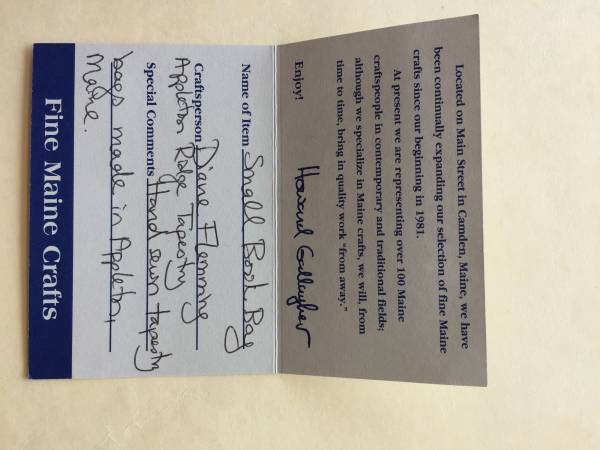 Located on Main Street in Camden, Maine, we have
been continually expanding our selection of fine Maine
crafts since our beginning in 1981.
At present we are representing over 100 Maine
craftspeople in contemporary and traditional fields;
although we specialize in Maine crafts, we will, from
time to time, bring in quality work "from away."
Enjoy!
Howard Gallagher
Name of Item Small Book Bag
Craftsperson Diane Flemming
Appleton Ridge Tapestry
Special Comments Hand sewn tapestry
bags made in Appleton,
Maine.
Fine Maine Crafts